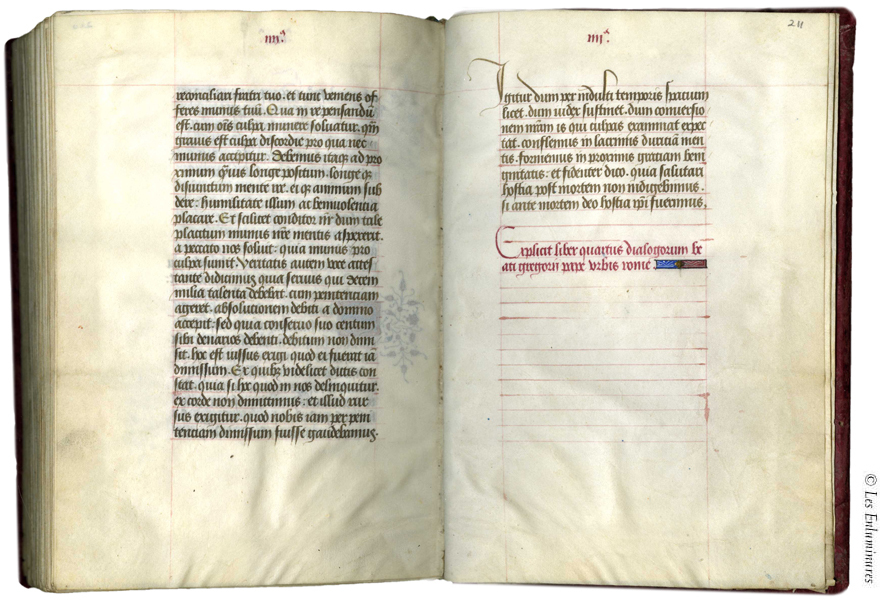 iiii.a
reconciliari fratri tuo. et tunc veniens of
feres munus tuū. Qua in re pensandū
est. cum oīs culpa munere soluatur. qm̄
grauis est culpa discordie pro qua nec
munus accipitur. Debemus itaqȝ ad pro
ximum q̄uis longe positum. longe qȝ
disiunctum mente ire. ei qȝ animum sub
dere: humilitate illum ac beniuolentia
placare. Et scilicet conditor nr̄ dum tale
placitum munus nr̄e mentis aspexerit.
a peccato nos soluit: quia munus pro
culpa sumit. Veritatis autem voce attes
tante didicimus quia seruus qui decem
milia talenta debebat. cum penitentiam
ageret. absolutionem debiti a domino
accepit. sed quia conseruo suo centum
sibi denarios debenti. debitum non dimi
sit. hoc est iussus exigi quod ei fuerat iā
dimissum. Ex quibȝ videlicet dictis con
stat. quia si hc̄ quod in nos delinquitur.
ex corde non dimittimus: et illud rur
sus exigitur. quod nobis iam per peni
tentiam dimissum fuisse gaudebamus.
iiii.a
211
Igitur dum per indulti temporis spatium
licet. dum iudex sustinet. dum conuersio
nem nr̄am is qui culpas examinat expec
tat. conflemus in lacrimis duritiā men
tis. formemus in proximis gratiam beni
gnitatis: et fidenter dico. quia salutari
hostia post mortem non indigebimus.
si ante mortem deo hostia ip̄i fuerimus.
Explicit liber quartus dialogorum be
ati gregorii pape vrbis rome
© Les Enluminures